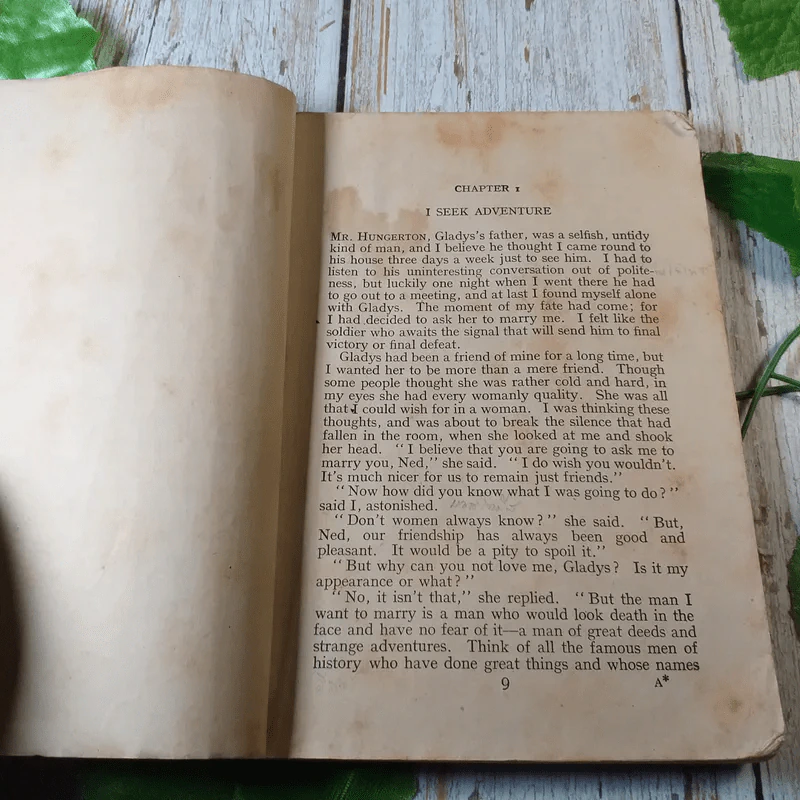 CHAPTER 1
I SEEK ADVENTURE
MR. HUNGERTON, Gladys's father, was a selfish, untidy
kind of man, and I believe he thought I came round to
his house three days a week just to see him. I had to
listen to his uninteresting conversation out of polite-
ness, but luckily one night when I went there he had
to go out to a meeting, and at last I found myself alone
with Gladys. The moment of my fate had come; for
I had decided to ask her to marry me. I felt like the
soldier who awaits the signal that will send him to final
victory or final defeat.
Gladys had been a friend of mine for a long time, but
I wanted her to be more than a mere friend. Though
some people thought she was rather cold and hard, in
my eyes she had every womanly quality. She was all
that I could wish for in a woman. I was thinking these
thoughts, and was about to break the silence that had
fallen in the room, when she looked at me and shook
her head. "I believe that you are going to ask me to
marry you, Ned," she said. "I do wish you wouldn't.
It's much nicer for us to remain just friends."
"Now how did you know what I was going to do?"
said I, astonished.
"Don't women always know?" she said. "But,
Ned, our friendship has always been good and
pleasant. It would be a pity to spoil it."
"But why can you not love me, Gladys? Is it my
appearance or what?"
"No, it isn't that," she replied. "But the man I
want to marry is a man who would look death in the
face and have no fear of it—a man of great deeds and
strange adventures. Think of all the famous men of
history who have done great things and whose names
9 A*